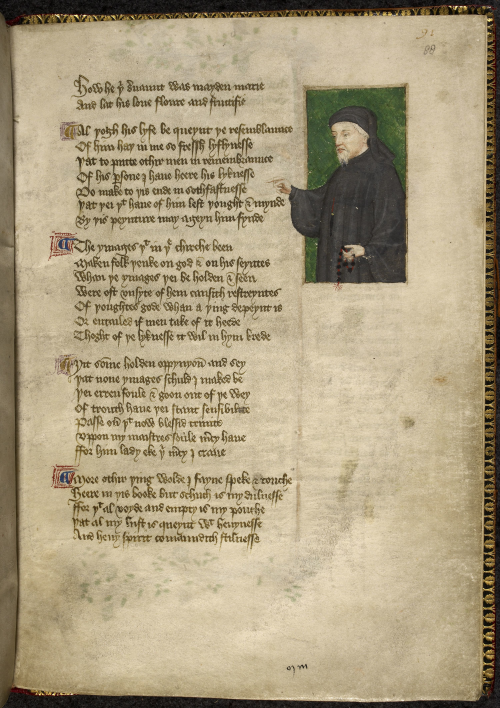 91
88
How he þi s̉uaunt was mayden marie
And lat his loue floure and fructifie
Al þogh his lyfe be queynt þe resemblaunce
Of him haþ in me so fressh lyflynesse
Þat to putte othir men in remembraunce
Of his ꝑsone I haue heere his lyknesse
Do make to þis ende in sothfastnesse
Þat þei þᵗ haue of him lest þought & mynde
By þis peynture may ageyn him fynde
The ymages þᵗ in þe chirche been
Maken folk þenke on god & on his seyntes
Whan þe ymages þei be holden & seen
Were oft vnsyte of hem causith restreyntes
Of þoughtes gode whan a þing depeynt is
Or entailed if men take of it heede
Thoght of þe lyknesse it wil in hym brede
Yit som̄e holden oppynyoū and sey
Þat none ymages schuld I maked be
Þei erren foule & goon out of þe wey
Of trouth haue þei scant sensibilite
Passe ou̓ þᵗ now blessid trinite
Vpon my maistres soule m̓cy haue
ffor him lady eke þi m̓cy I craue
More othir þing wolde I fayne speke & touche
Heere in þis booke but schuch is my dulnesse
ffor þᵗ al voyde and empty is my pouche
Þat al my lust is queynt wᵗ heuynesse
And heuy spirit comaundith stilnesse